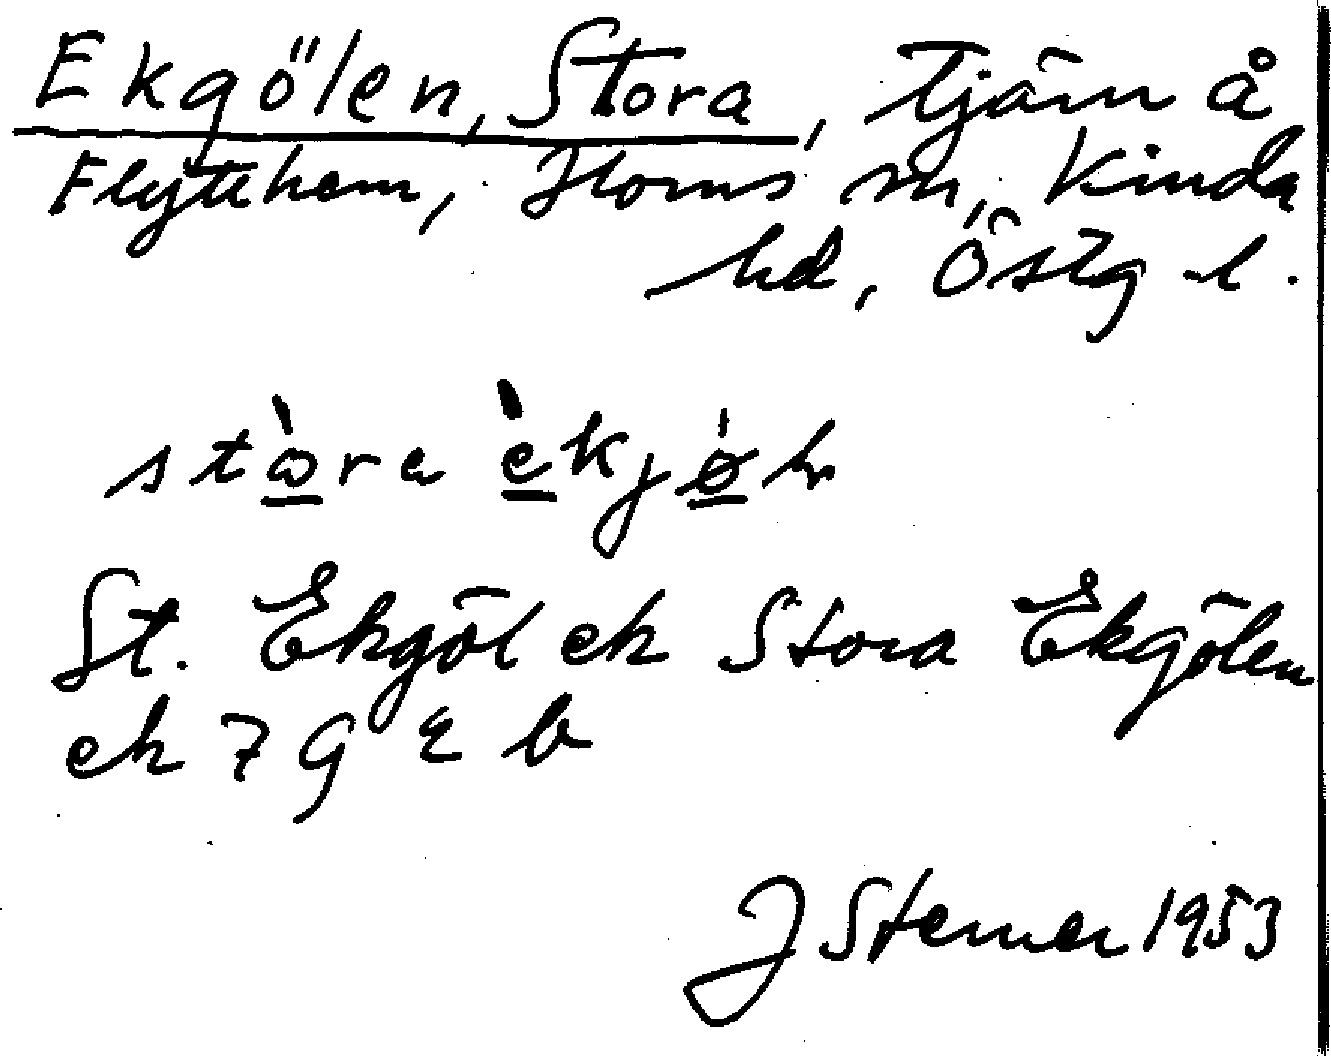 Ekgölen, Stora, tjärn å
Flyttehem, Horns sn, Kinda
hd, Östg l.
stòra èkjøln
St. Ekgöl ek Stora Ekgölen
ek 7 G & b
J Sterner 1953